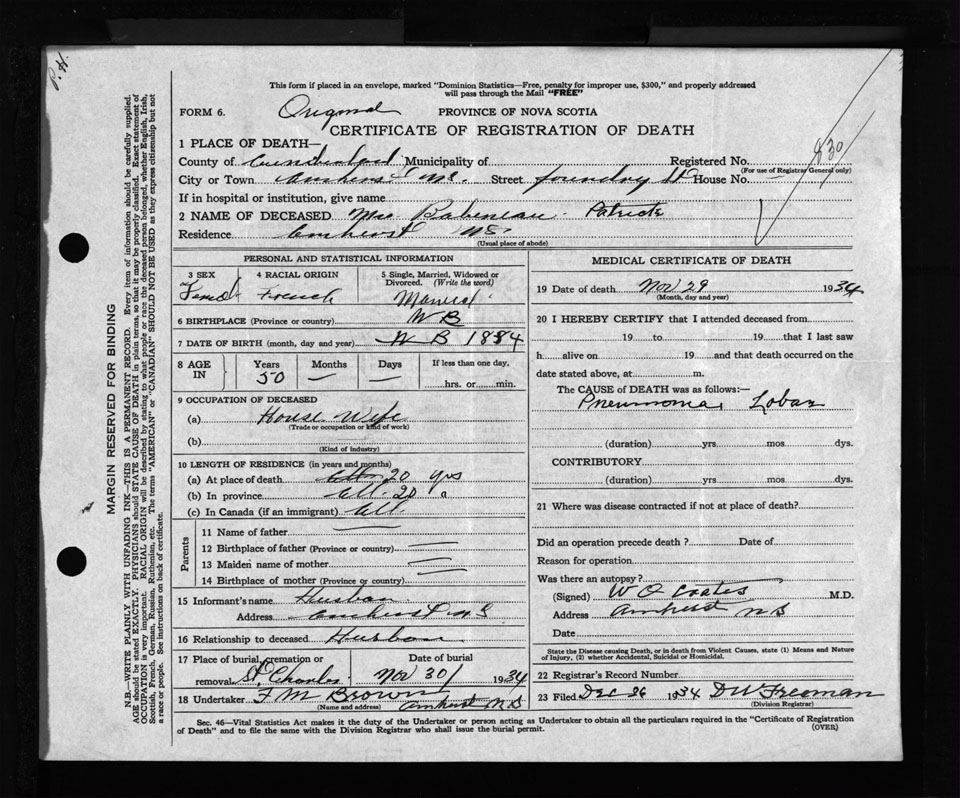 P. H.
This form if placed in an envelope, marked "Dominion Statistics—Free, penalty for improper use, $300," and properly addressed
will pass through the Mail "FREE"
FORM 6. Original PROVINCE OF NOVA SCOTIA
CERTIFICATE OF REGISTRATION OF DEATH
1 PLACE OF DEATH—
County of Cumberland Municipality of Registered No. 830
(For use of Registrar General only)
City or Town Amherst N.S. Street foundry St House No.
If in hospital or institution, give name
2 NAME OF DECEASED Mrs Babineau Patrick
Residence Amherst NS.
(Usual place of abode)
PERSONAL AND STATISTICAL INFORMATION
3 SEX 4 RACIAL ORIGIN 5 Single, Married, Widowed or
Divorced. (Write the word)
French Married
6 BIRTHPLACE (Province or country) N B
7 DATE OF BIRTH (month, day and year) N B 1884
8 AGE IN Years Months Days If less than one day,
50 — — hrs. or min.
9 OCCUPATION OF DECEASED
(a) House Wife
(Trade or occupation or kind of work)
(b)
(Kind of industry)
10 LENGTH OF RESIDENCE (in years and months)
(a) At place of death 20 yrs
(b) In province All-20
(c) In Canada (if an immigrant) All
Parents
11 Name of father
12 Birthplace of father (Province or country)
13 Maiden name of mother
14 Birthplace of mother (Province or country)
15 Informant's name Husban
Address Amherst N.S
16 Relationship to deceased Husban
17 Place of burial, cremation or Date of burial
removal St. Charles Nov 30 1934
18 Undertaker F M Brown
(Name and address) Amherst N S
MEDICAL CERTIFICATE OF DEATH
19 Date of death Nov 29 1934
(Month, day and year)
20 I HEREBY CERTIFY that I attended deceased from
19 to 19 that I last saw
h alive on 19 and that death occurred on the
date stated above, at m.
The CAUSE of DEATH was as follows:—
Pneumonia, Lobar
(duration) yrs mos dys.
CONTRIBUTORY
(duration) yrs. mos dys.
21 Where was disease contracted if not at place of death?
Did an operation precede death ? Date of
Reason for operation
Was there an autopsy?
(Signed) W O Coates M.D.
Address Amherst N S
Date
State the Disease causing Death, or in death from Violent Causes, state (1) Means and Nature
of Injury, (2) whether Accidental, Suicidal or Homicidal.
22 Registrar's Record Number
23 Filed Dec 26 1934 D W Freeman
(Division Registrar)
Sec. 46—Vital Statistics Act makes it the duty of the Undertaker or person acting as Undertaker to obtain all the particulars required in the "Certificate of Registration
of Death" and to file the same with the Division Registrar who shall issue the burial permit. (OVER)
MARGIN RESERVED FOR BINDING
N.B.—WRITE PLAINLY WITH UNFADING INK—THIS IS A PERMANENT RECORD. Every item of information should be carefully supplied.
AGE should be stated EXACTLY. PHYSICIANS should STATE CAUSE OF DEATH in plain terms, so that it may be properly classified. Exact statement of
OCCUPATION is very important. RACIAL ORIGIN will be described by stating to what people or race the deceased person belonged, whether English, Irish,
Scottish, French, German, Russian, Ruthenian, etc. The terms "AMERICAN" or "CANADIAN" SHOULD NOT BE USED as they express citizenship but not
a race or people. See instructions on back of certificate.